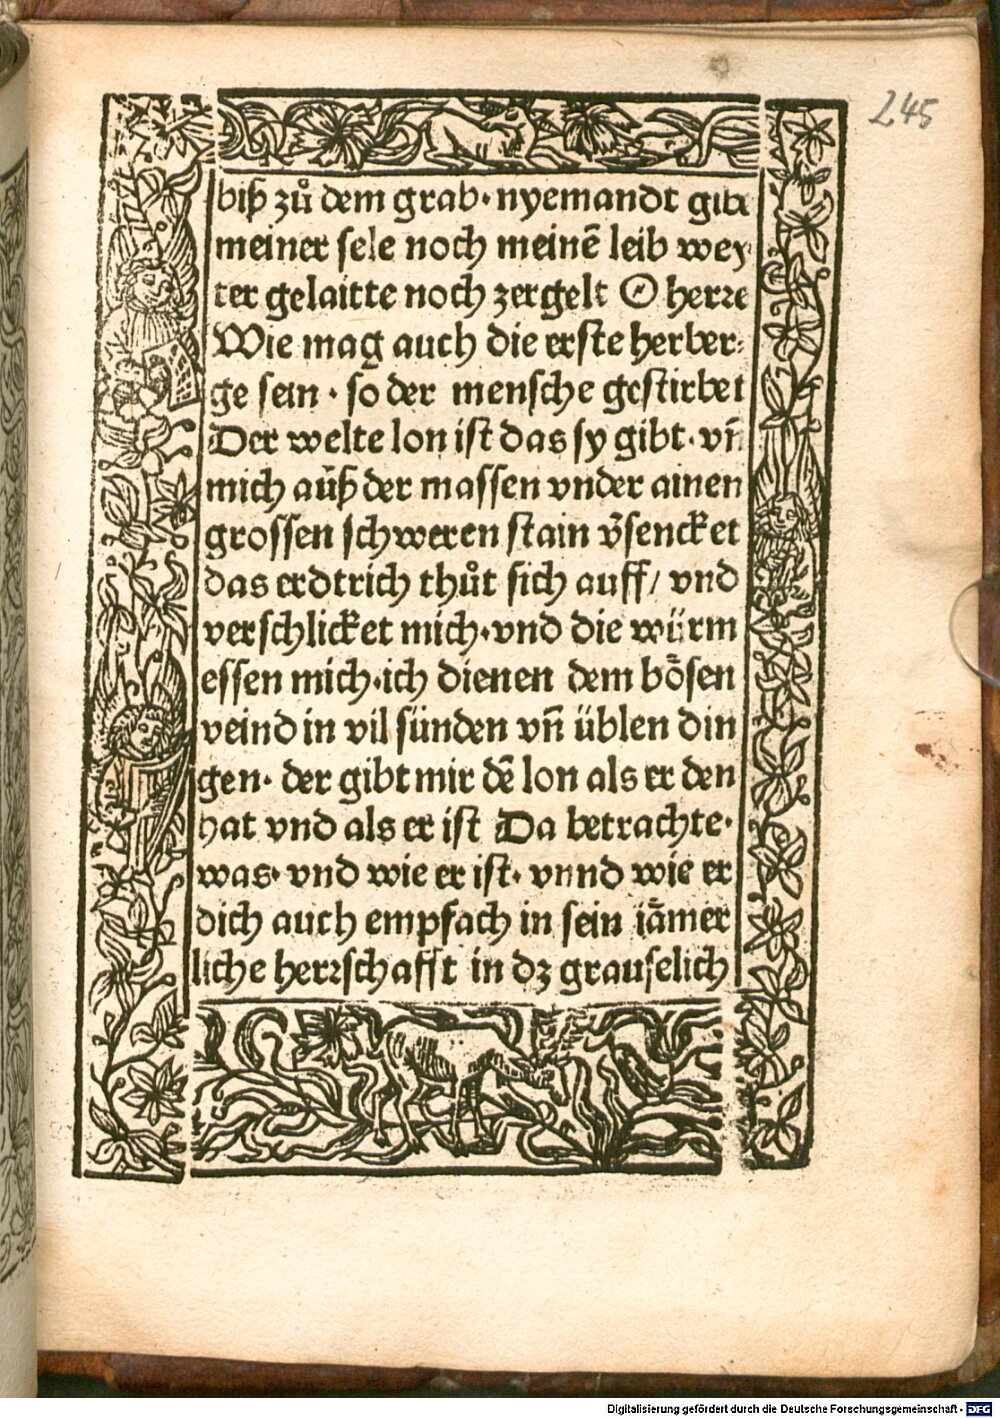 245
biß zů dem grab· nyemandt gibt
meiner sele noch meinē leib wey
ter gelaitte noch zergelt O herre
Wie mag auch die erste herber:
ge sein · so der mensche gestirbet
Der welte lon ist das sy gibt· vn̄
mich auß der massen vnder ainen
grossen schweren stain v̄sencket
das erdtrich thůt sich auff/ vnd
verschlicket mich·vnd die würm
essen mich·ich dienen dem bösen
veind in vil sünden vn̄ üblen din
gen· der gibt mir dē lon als er den
hat vnd als er ist Da betrachte·
was· vnd wie er ist· vnnd wie er
dich auch empfach in sein iämer
liche herrschafft in dz grauselich
Digitalisierung gefördert durch die Deutsche Forschungsgemeinschaft - DFG